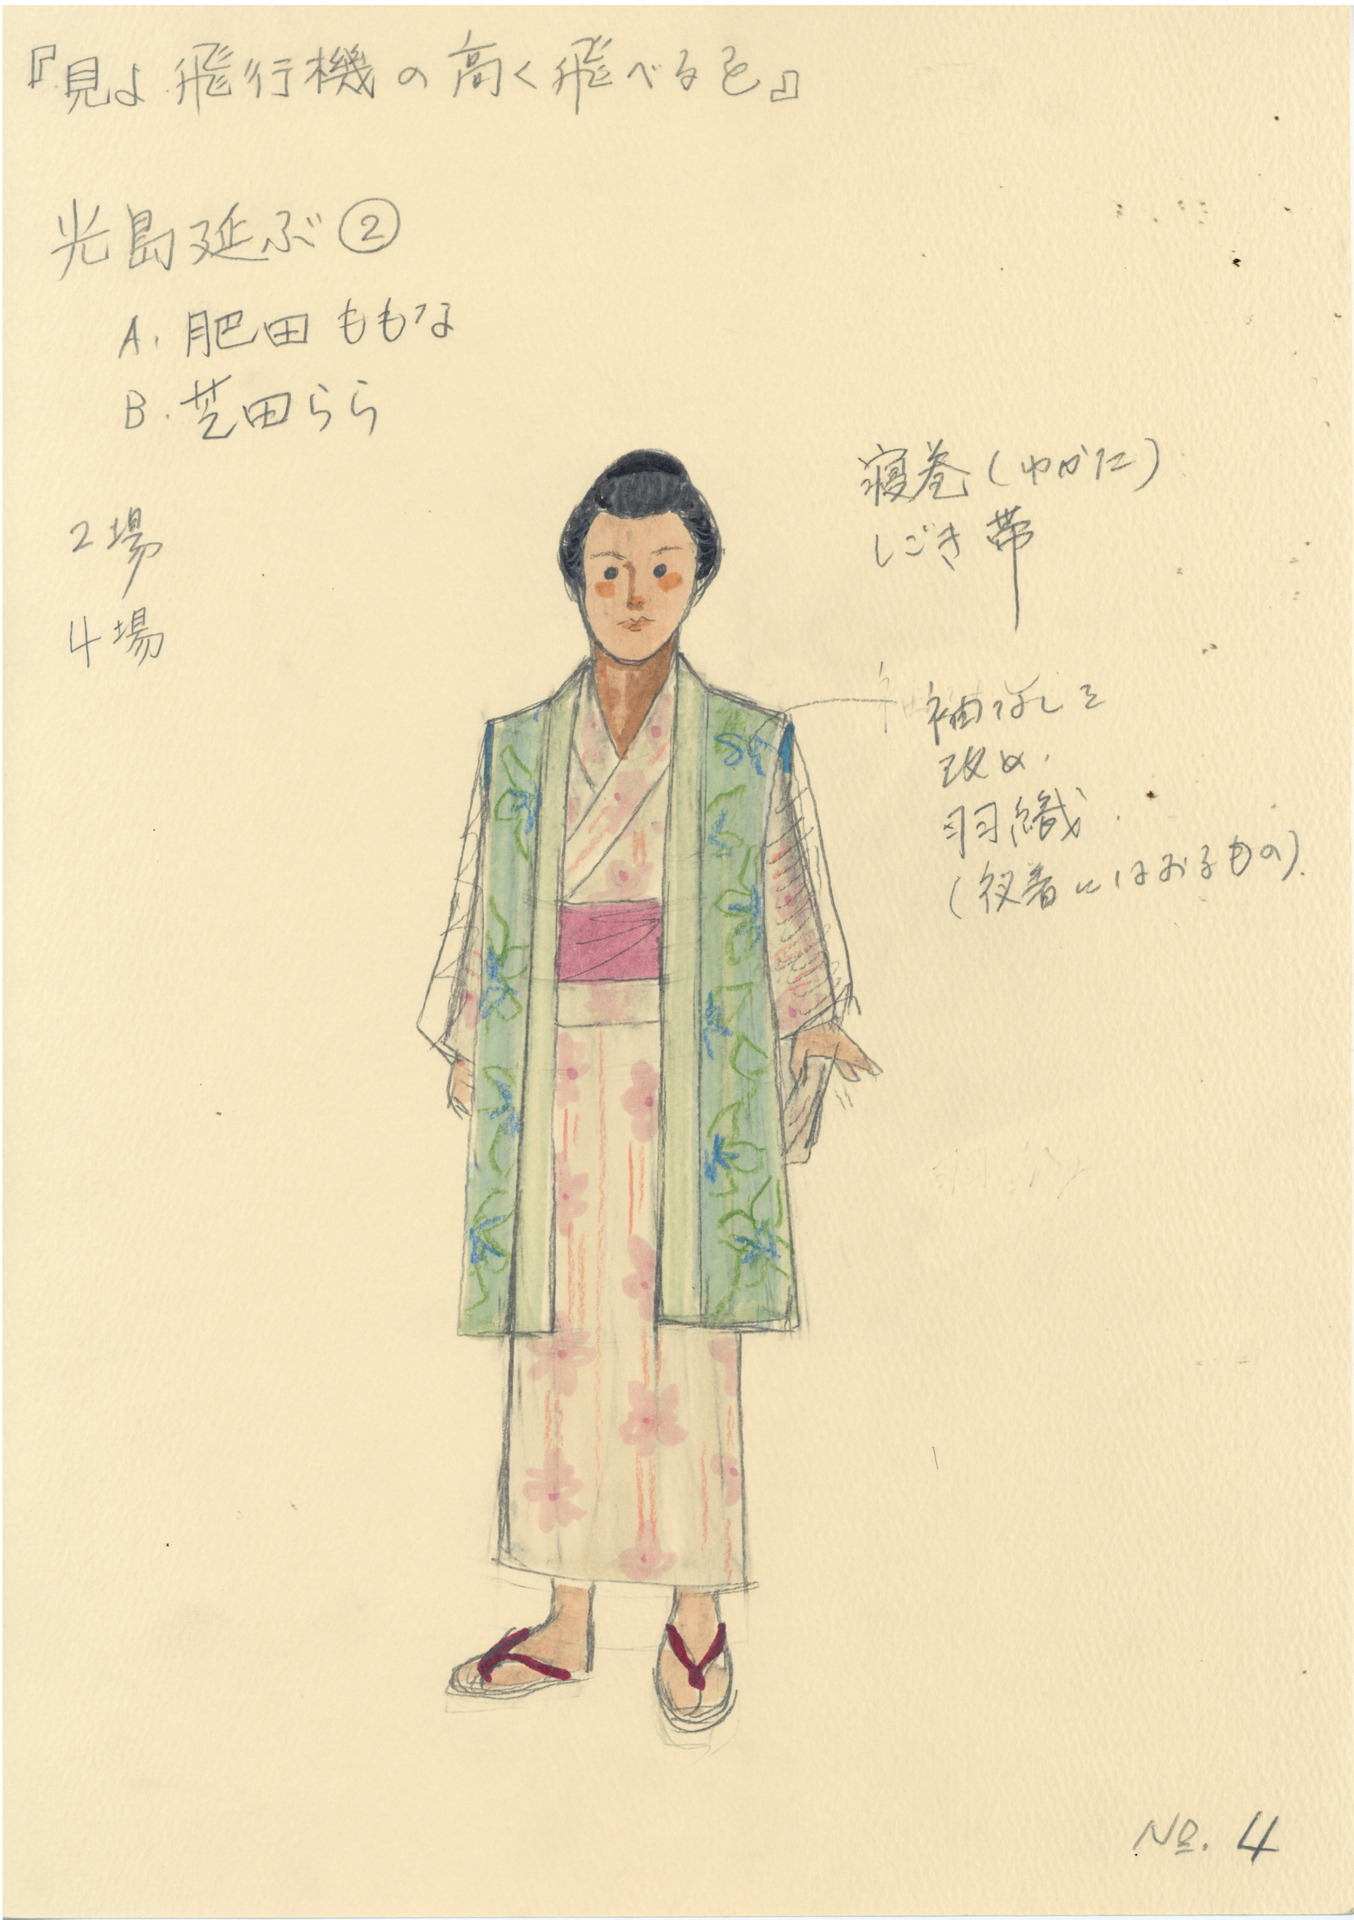 『見よ飛行機の高く飛べるを』
光島延ぶ②
A. 肥田ももな
B. 芝田らら
2場
4場
寝巻(ゆかた)
しごき帯
袖なしを
改め.
羽織.
(寝着にはおるもの).
No. 4